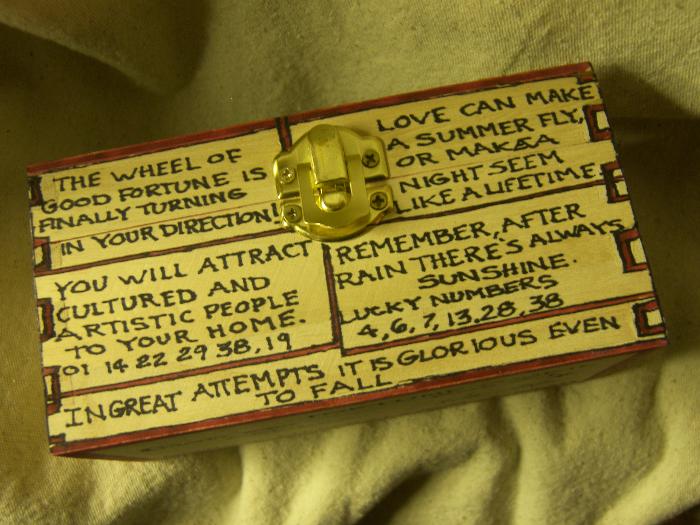 THE WHEEL OF
GOOD FORTUNE IS
FINALLY TURNING
IN YOUR DIRECTION!
LOVE CAN MAKE
A SUMMER FLY,
OR MAKE A
NIGHT SEEM
LIKE A LIFETIME.
YOU WILL ATTRACT
CULTURED AND
ARTISTIC PEOPLE
TO YOUR HOME.
01 14 22 29 38, 19
REMEMBER, AFTER
RAIN THERE'S ALWAYS
SUNSHINE.
LUCKY NUMBERS
4, 6, 7, 13, 28, 38
IN GREAT ATTEMPTS IT IS GLORIOUS EVEN
TO FALL